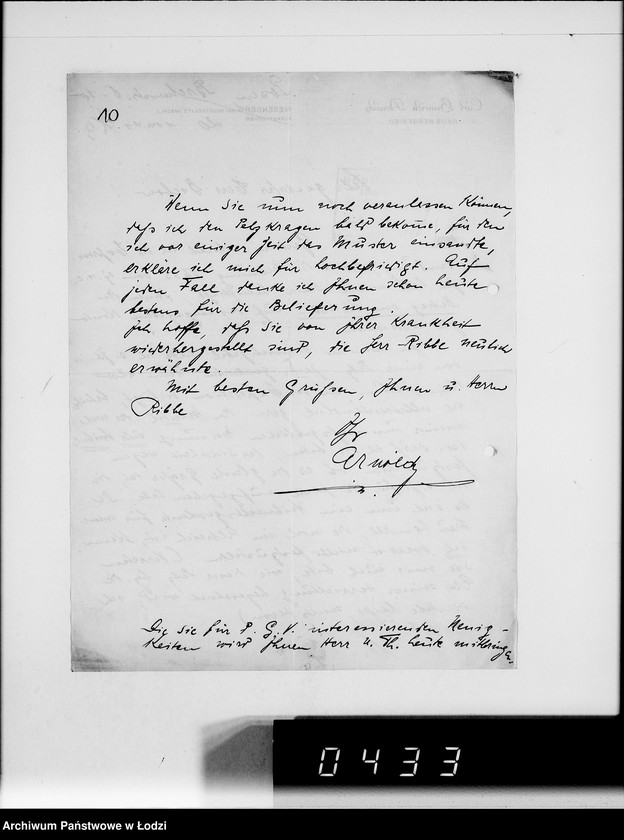 10
Wenn Sie nun noch veranlassen können,
daß ich den Pelzkragen bald bekome, für den
ich vor einiger Zeit das Muster einsandte,
erkläre ich mich für hochbefriedigt. Auf
jeden Fall danke ich Ihnen schon heute
bestens für die Belieferung.
Ich hoffe, daß Sie von Ihrer Krankheit
wiederhergestellt sind, die Herr Ribbe neulich
erwähnte.
Mit besten Grüßen, Ihnen u. Herrn
Ribbe
Ihr
Arnoldy
Die Sie für P. G. V. interessierenden Neuig-
keiten wird Ihnen Herr u. Th. heute mitbringen.
0433
Archiwum Państwowe w Łodzi